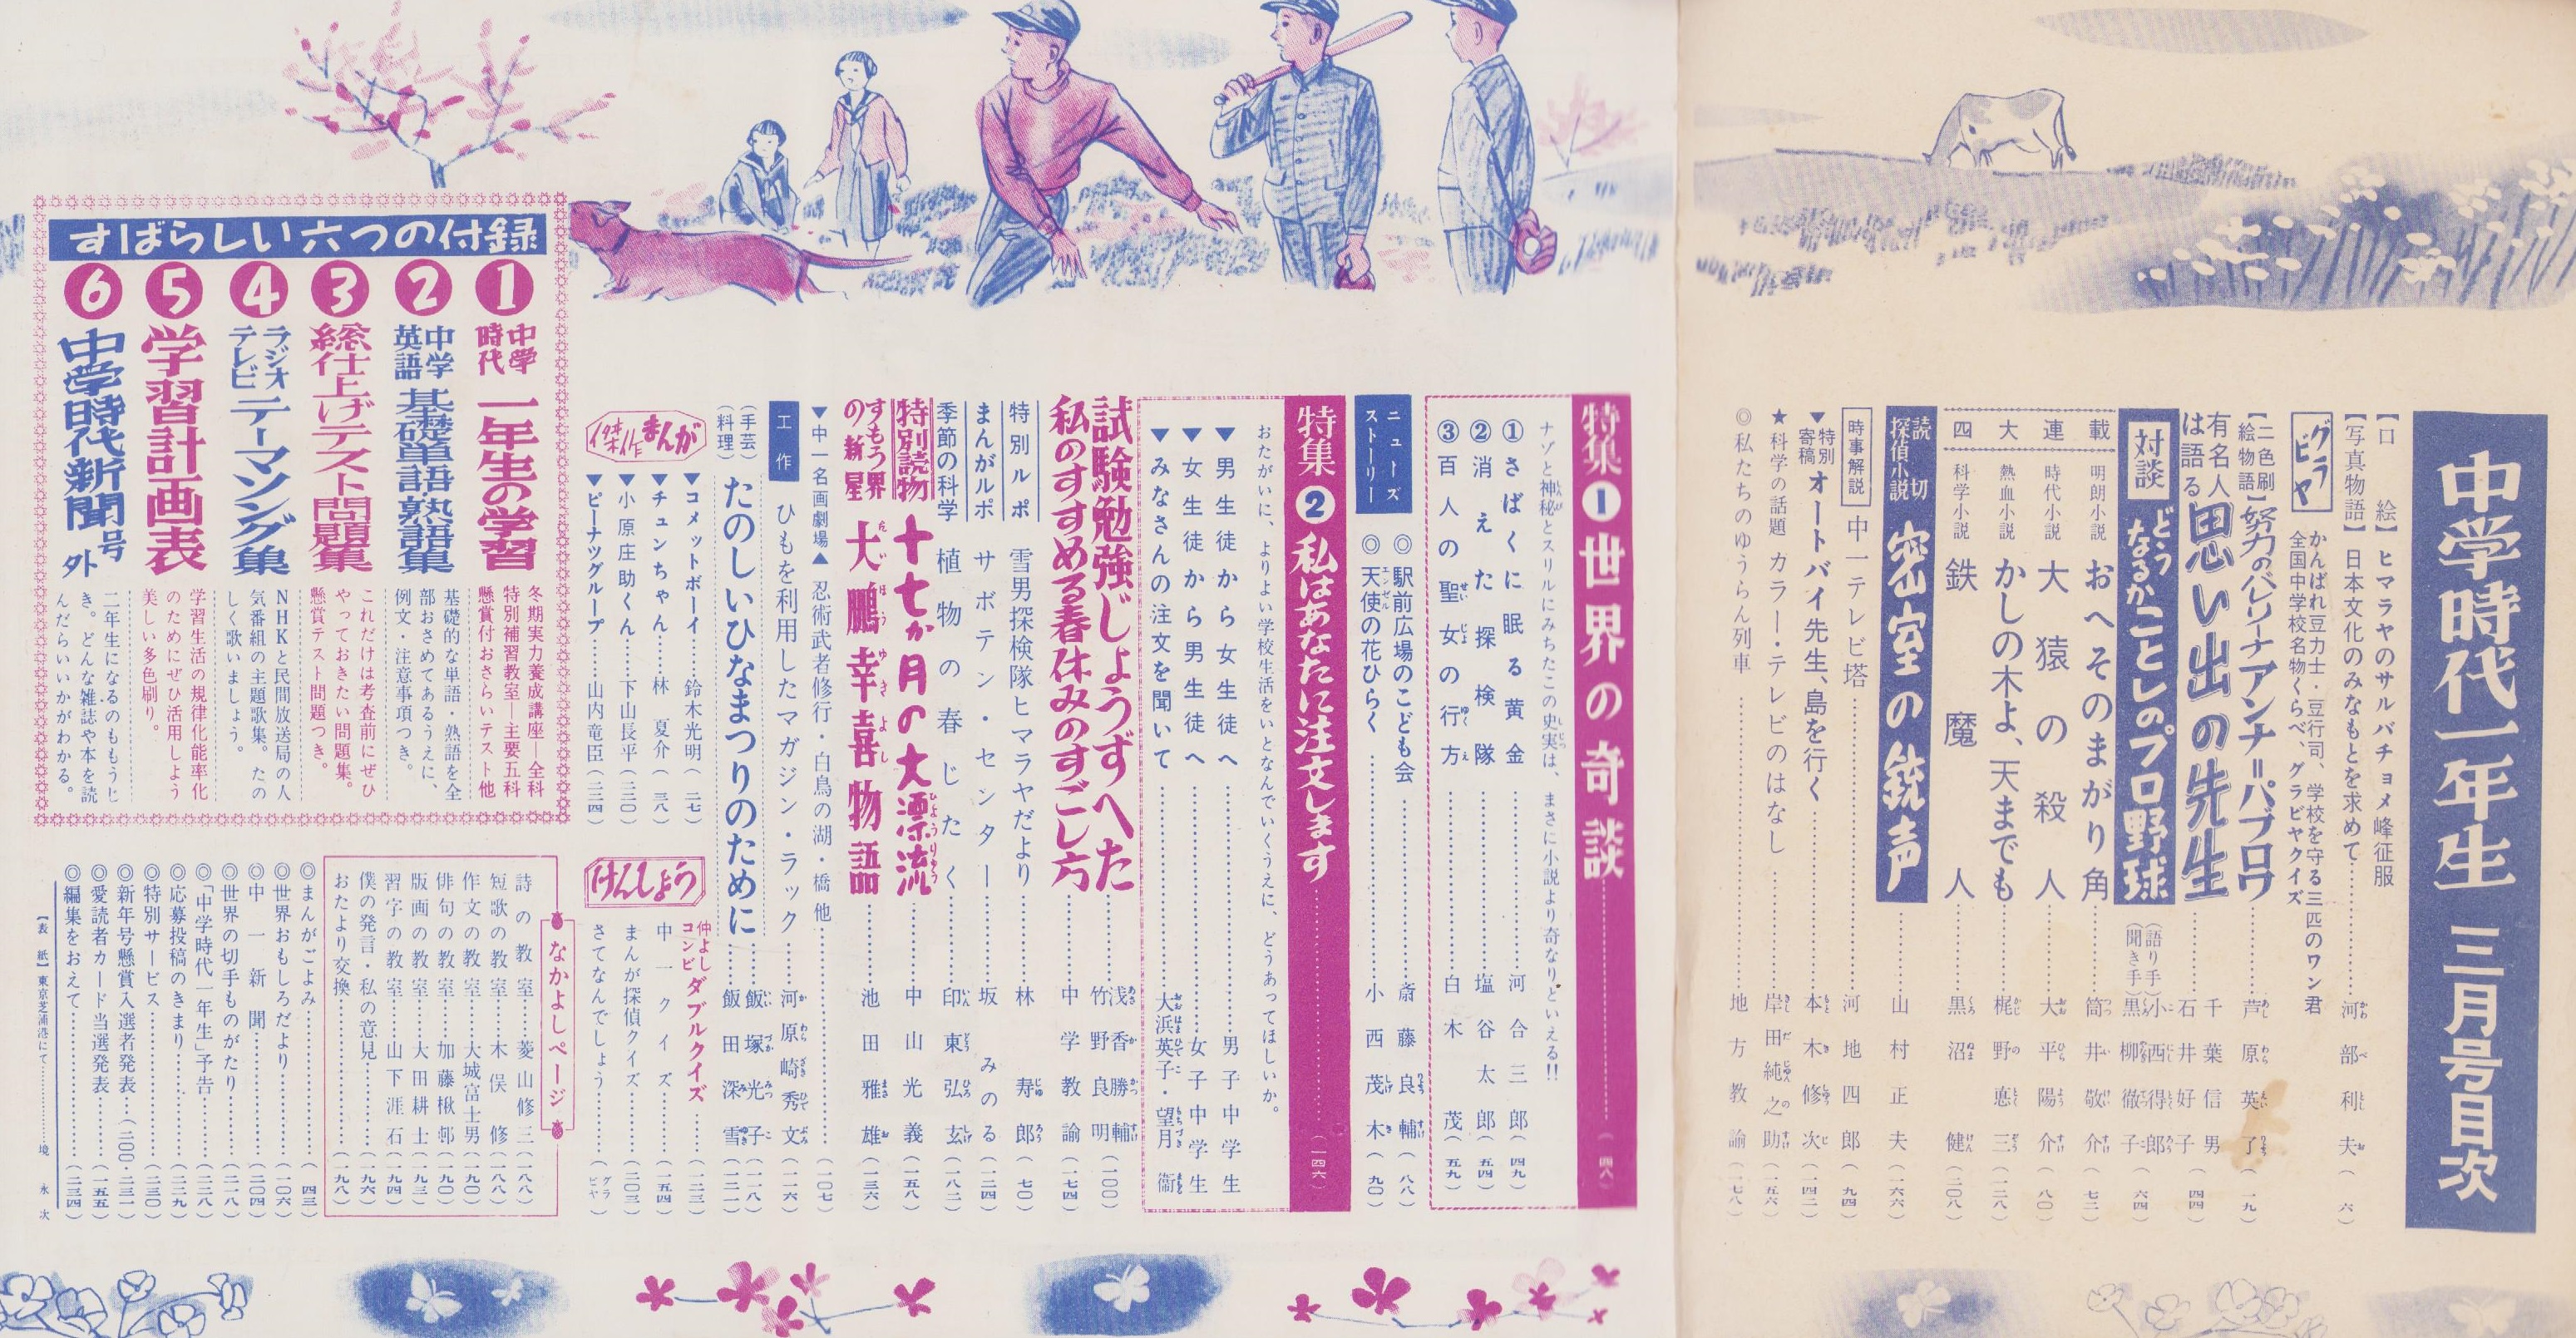 中学時代一年生 三月号目次
【口絵】ヒマラヤのサルバチョメ峰征服
【写真物語】日本文化のみなもとを求めて……河部利夫(六)
グラビヤ
がんばれ豆力士・豆行司、学校を守る三匹のワン君
全国中学校名物くらべ、グラビヤクイズ
【二色刷絵物語】努力のバレリーナアンナ=パブロワ……芦原英了(一九)
有名人は語る 思い出の先生……千葉信男 石井好子(四四)
対談 どうなるかことしのプロ野球 (語り手)小西得郎 (聞き手)黒柳徹子(六四)
四大連載
明朗小説 おへそのまがり角……筒井敬介(七二)
時代小説 大猿の殺人……大平陽介(八〇)
熱血小説 かしの木よ、天までも……梶野悳三(一二八)
科学小説 鉄魔人……黒沼健(二〇八)
読切探偵小説 密室の銃声……山村正夫(一六六)
時事解説 中一テレビ塔……河地四郎(九四)
▼特別寄稿 オートバイ先生、島を行く……本木修次(一四二)
★科学の話題 カラー・テレビのはなし……岸田純之助(一五六)
◎私たちのゆうらん列車……地方教諭(一七八)
特集1 世界の奇談……(四八)
ナゾと神秘とスリルにみちたこの史実は、まさに小説より奇なりといえる!!
①さばくに眠る黄金……河合三郎(四九)
②消えた探検隊……塩谷太郎(五四)
③百人の聖女の行方……白木茂(五九)
ニューズストーリー
◎駅前広場のこども会……斎藤良輔(八八)
◎天使の花ひらく……小西茂木(九〇)
特集2 私はあなたに注文します……(一四六)
おたがいに、よりよい学校生活をいとなんでいくうえに、どうあってほしいか。
▼男生徒から女生徒へ……男子中学生
▼女生徒から男生徒へ……女子中学生
▼みなさんの注文を聞いて……大浜英子・望月衞
試験勉強じょうずへた……浅香勝輔 竹野良明(一〇〇)
私のすすめる春休みのすごし方……中学教諭(一七四)
特別ルポ 雪男探検隊ヒマラヤだより……林寿郎(七〇)
まんがルポ サボテン・センター……坂みのる(二二四)
季節の科学 植物の春じたく……印東弘玄(一八二)
特別読物 十七か月の大漂流……中山光義(一五八)
すもう界の新星 大鵬幸喜物語……池田雅雄(一三六)
▼中一名画劇場▲ 忍術武者修行・白鳥の湖・橋他……(一〇七)
工作 ひもを利用したマガジン・ラック……河原崎秀文(二一六)
(手芸)(料理) たのしいひなまつりのために……飯塚光子(二一八) 飯田深雪(二二一)
傑作まんが
▼コメットボーイ……鈴木光明(二七)
▼チュンちゃん……林夏介(三八)
▼小原庄助くん……下山長平(二三〇)
▼ピーナツグループ……山内竜臣(二三四)
けんしょう
仲よしコンビ ダブルクイズ……(二三)
中一クイズ……(一五四)
まんが探偵クイズ……(二〇三)
さてなんでしょう……(グラビヤ)
すばらしい六つの付録
1 中学時代 一年生の学習
冬期実力養成講座―全科
特別補習教室―主要五科
懸賞付おさらいテスト他
2 中学英語 基礎単語・熟語集
基礎的な単語・熟語を全
部おさめてあるうえに、
例文・注意事項つき。
3 総仕上げテスト問題集
これだけは考査前にぜひ
やっておきたい問題集。
懸賞テスト問題つき。
4 ラジオテレビ テーマソング集
NHKと民間放送局の人
気番組の主題歌集。たの
しく歌いましょう。
5 学習計画表
学習生活の規律化能率化
のためにぜひ活用しよう
美しい多色刷り。
6 中学時代新聞 号外
二年生になるのももうじ
き。どんな雑誌や本を読
んだらいいかがわかる。
なかよしページ
詩の教室……菱山修三(一八八)
短歌の教室……木俣修(一八八)
作文の教室……大城富士男(一九〇)
俳句の教室……加藤楸邨(一九〇)
版画の教室……大田耕士(一九三)
習字の教室……山下涯石(一九四)
僕の発言・私の意見……(一九六)
おたより交換……(一九八)
◎まんがごよみ……(四三)
◎世界おもしろだより……(一〇六)
◎中一新聞……(二〇四)
◎世界の切手ものがたり……(二一八)
◎「中学時代一年生」予告……(二二八)
◎応募投稿のきまり……(二二九)
◎特別サービス……(二三〇)
◎新年号懸賞入選者発表……(二〇〇・二三一)
◎愛読者カード当選発表……(一五五)
◎編集をおえて……(二三四)
【表紙】東京芝浦港にて……境永次